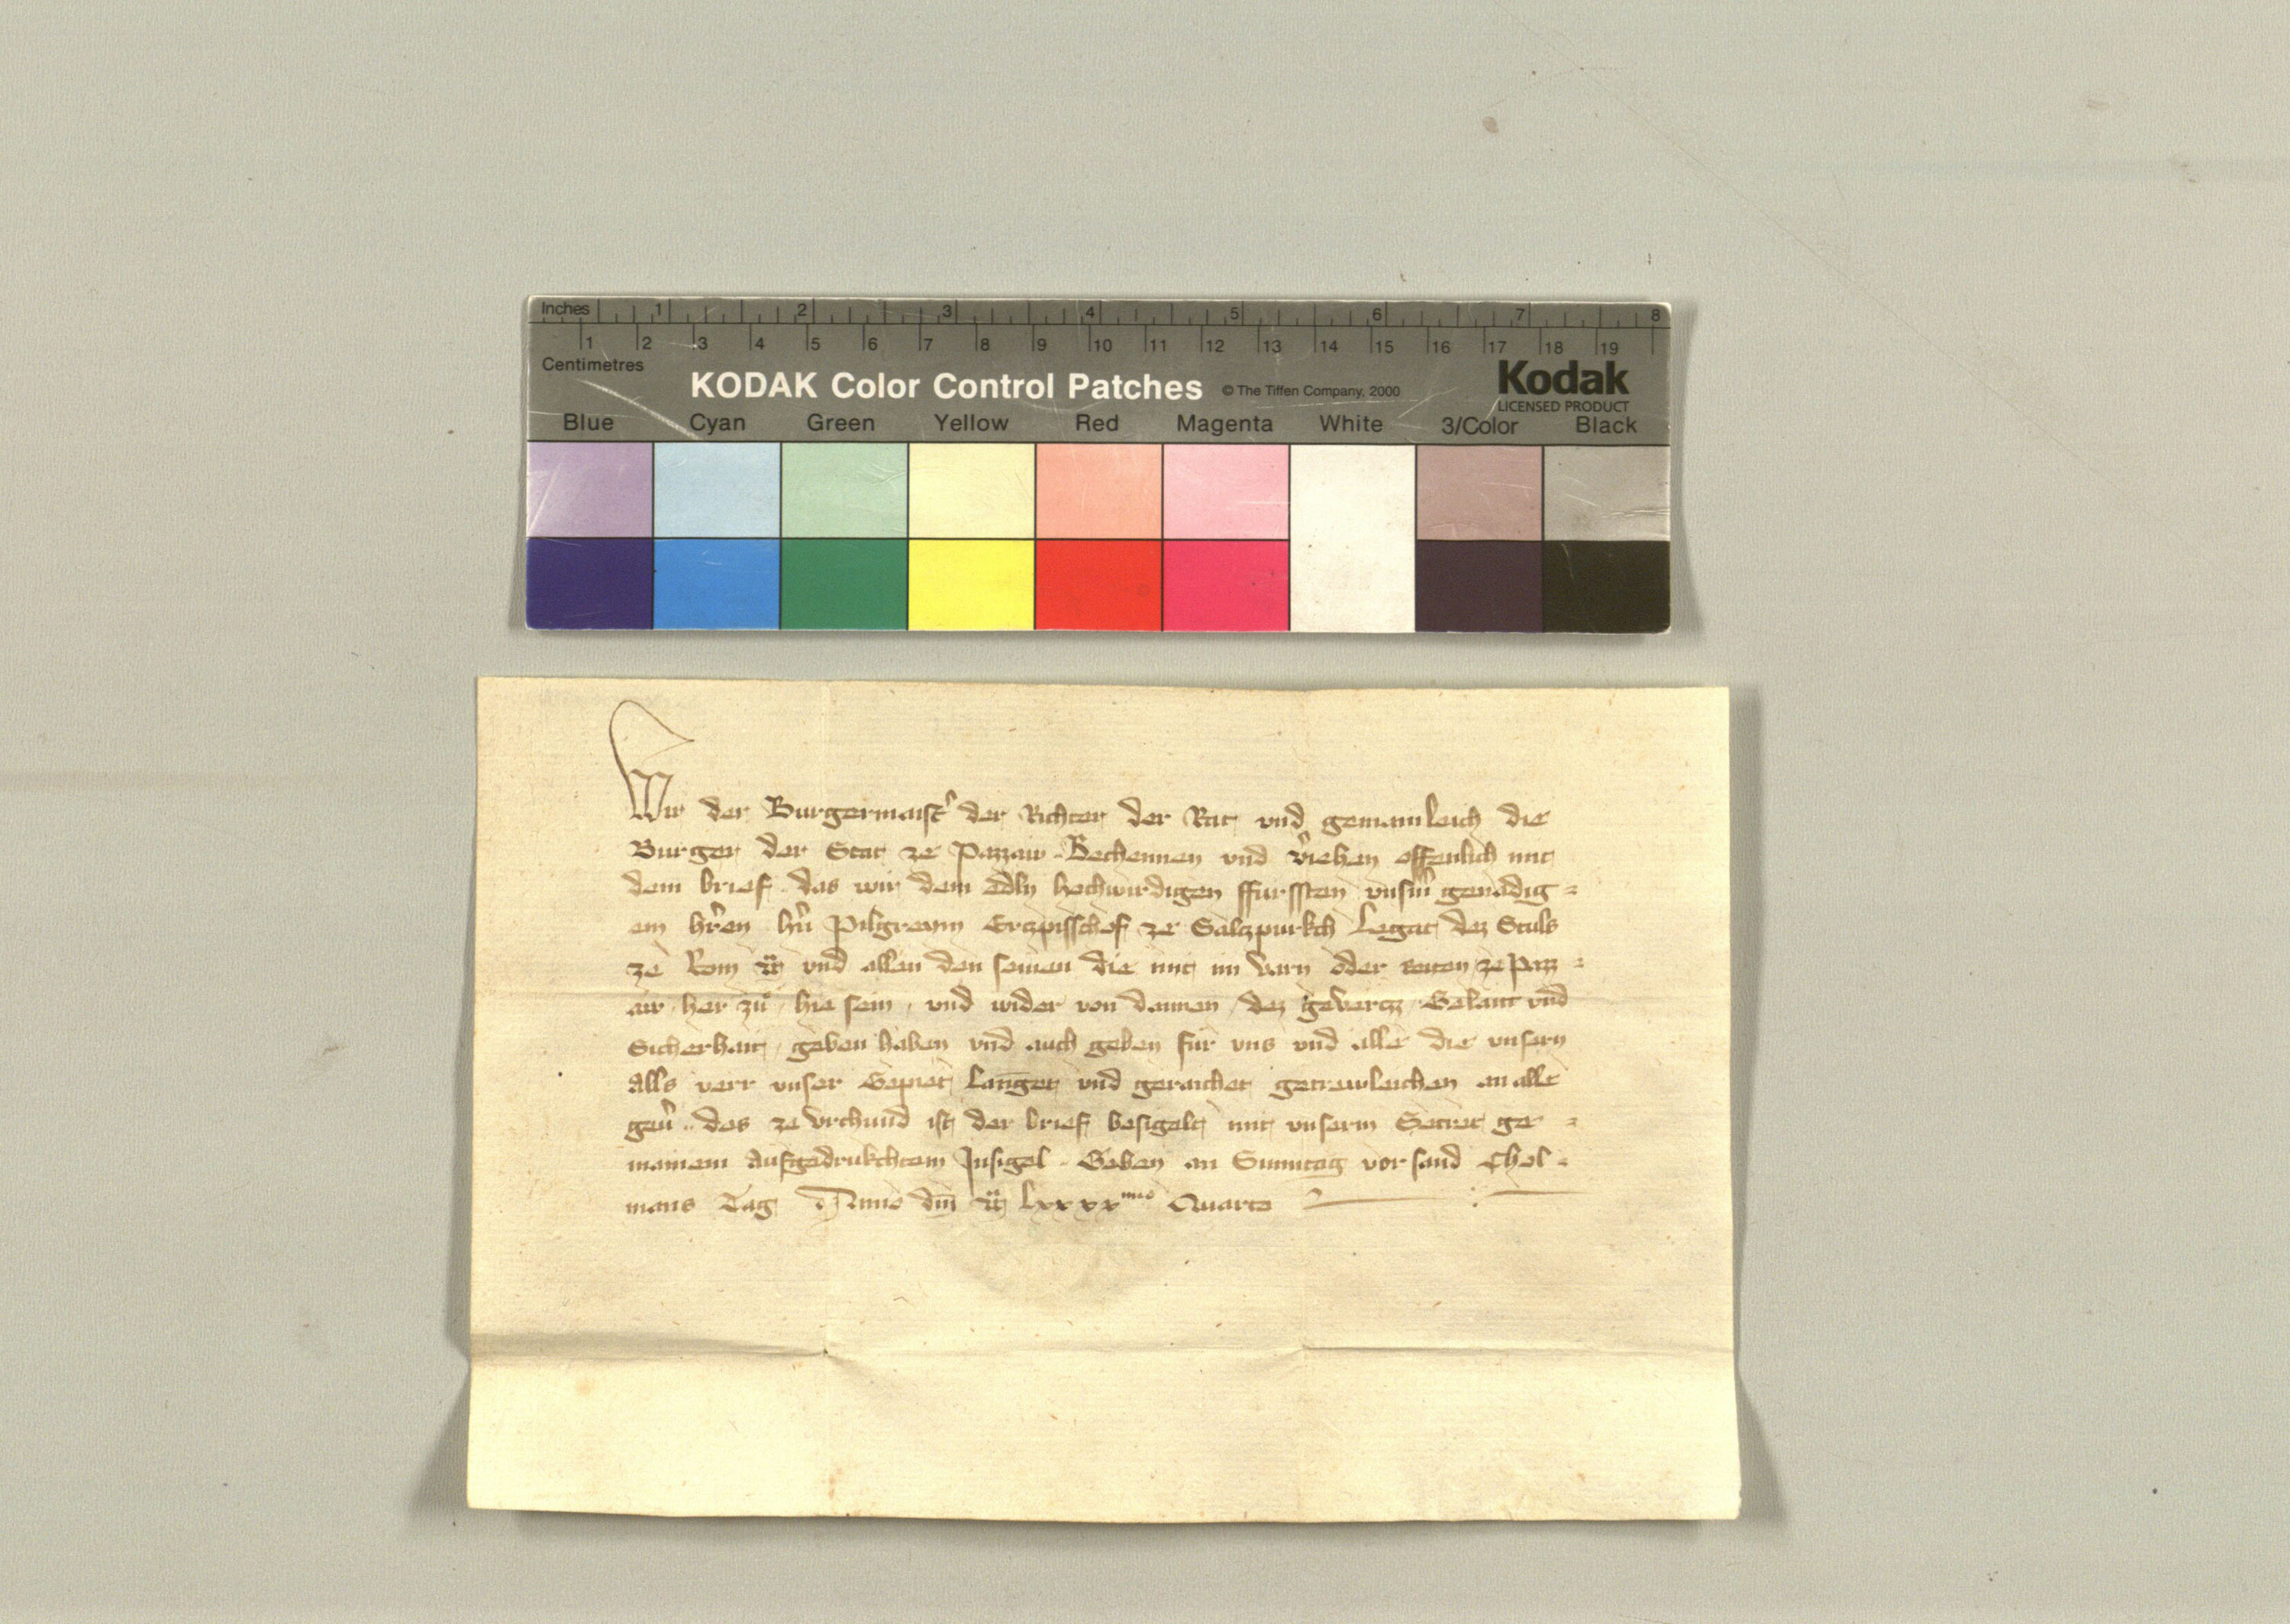 Inches 1 2 3 4 5 6 7 8
1 2 3 4 5 6 7 8 9 10 11 12 13 14 15 16 17 18 19
Centimetres
KODAK Color Control Patches © The Tiffen Company, 2000 Kodak
LICENSED PRODUCT
Blue Cyan Green Yellow Red Magenta White 3/Color Black
Wir der Burgermaist̉ der Richter der Rat vnd gemainleich die
Burger der Stat ze Pazzaw. Bechennen vnd v̉iehen offenlich mit
dem brief. das wir dem edln hochwirdigen ffürssten vnsm̉ genadig=
em hr̉en hn̉ Pilgreym Erczpisschof ze Salczpurkch Legat dez Stuls
ze Rom und allen den seinen die mit im varn oder reiten ze Pazz=
aw her zů, hie sein, vnd wider von dannen, dez gevercz, Gelait vnd
Sicherhait, geben haben vnd auch geben für vns vnd alle die vnsern
alls verr vnser Gepiet langet vnd geraichet getrewleichen an alle
geuͤ.. des ze vrchund ist der brief besigelt mit vnserm Secret ge=
mainem aufgedrukchtem Insigel. Geben an Sunntag vor sand Chol=
mans Tag Anno dm̄ lxxxx Quarto